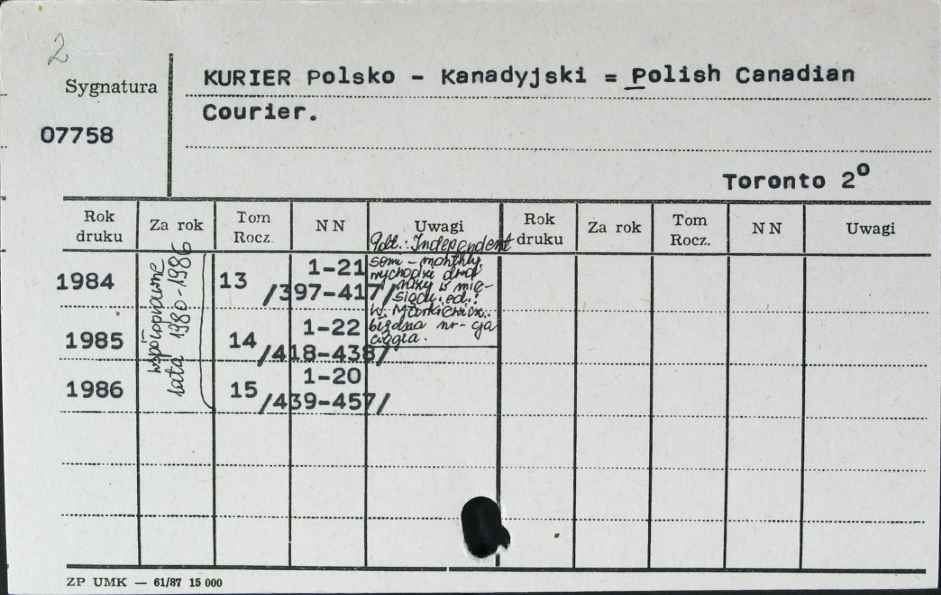 2
Sygnatura
KURIER Polsko - Kanadyjski = Polish Canadian
Courier.
07758
Toronto 2o
Rok druku Za rok Tom Rocz. NN Uwagi Rok druku Za rok Tom Rocz. NN Uwagi
Pdt.: Independent
semi-monthly
wychodzi dwa
razy w mie-
siącu. ed.:
W. Markiewicz.
błędna nr-cja
ciągła.
współoprawne
lata 1980-1986
1984 13 1-21
/397-417/
1985 14 1-22
/418-438/
1986 15 1-20
/439-457/
ZP UMK — 61/87 15 000